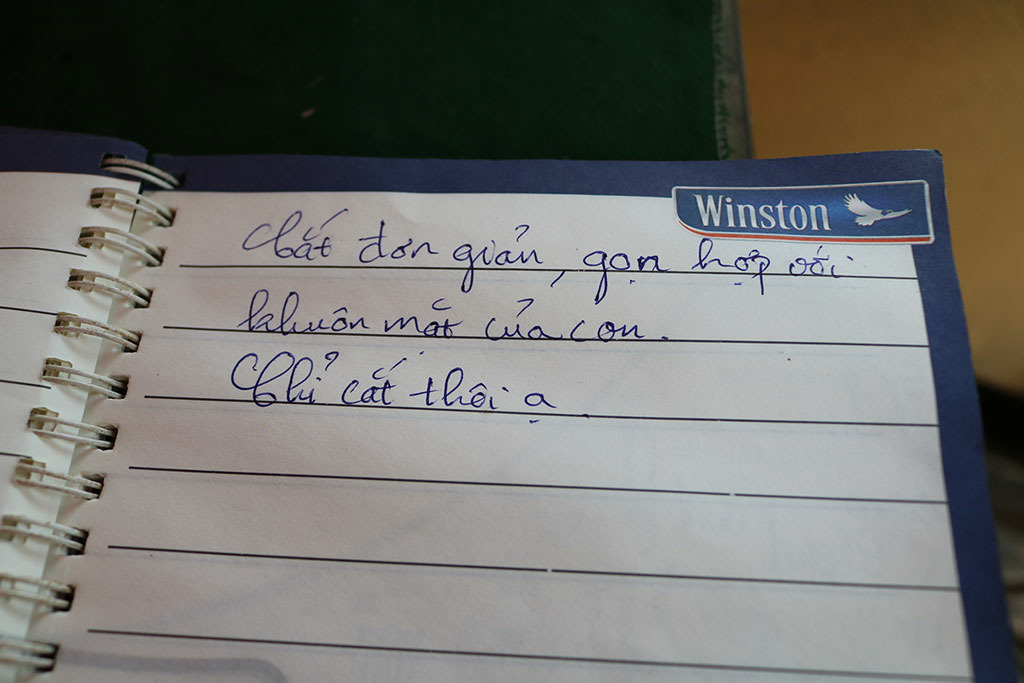 Winston
Cắt đơn giản, gọn hợp với
khuôn mặt của con.
Chỉ cắt thôi ạ.